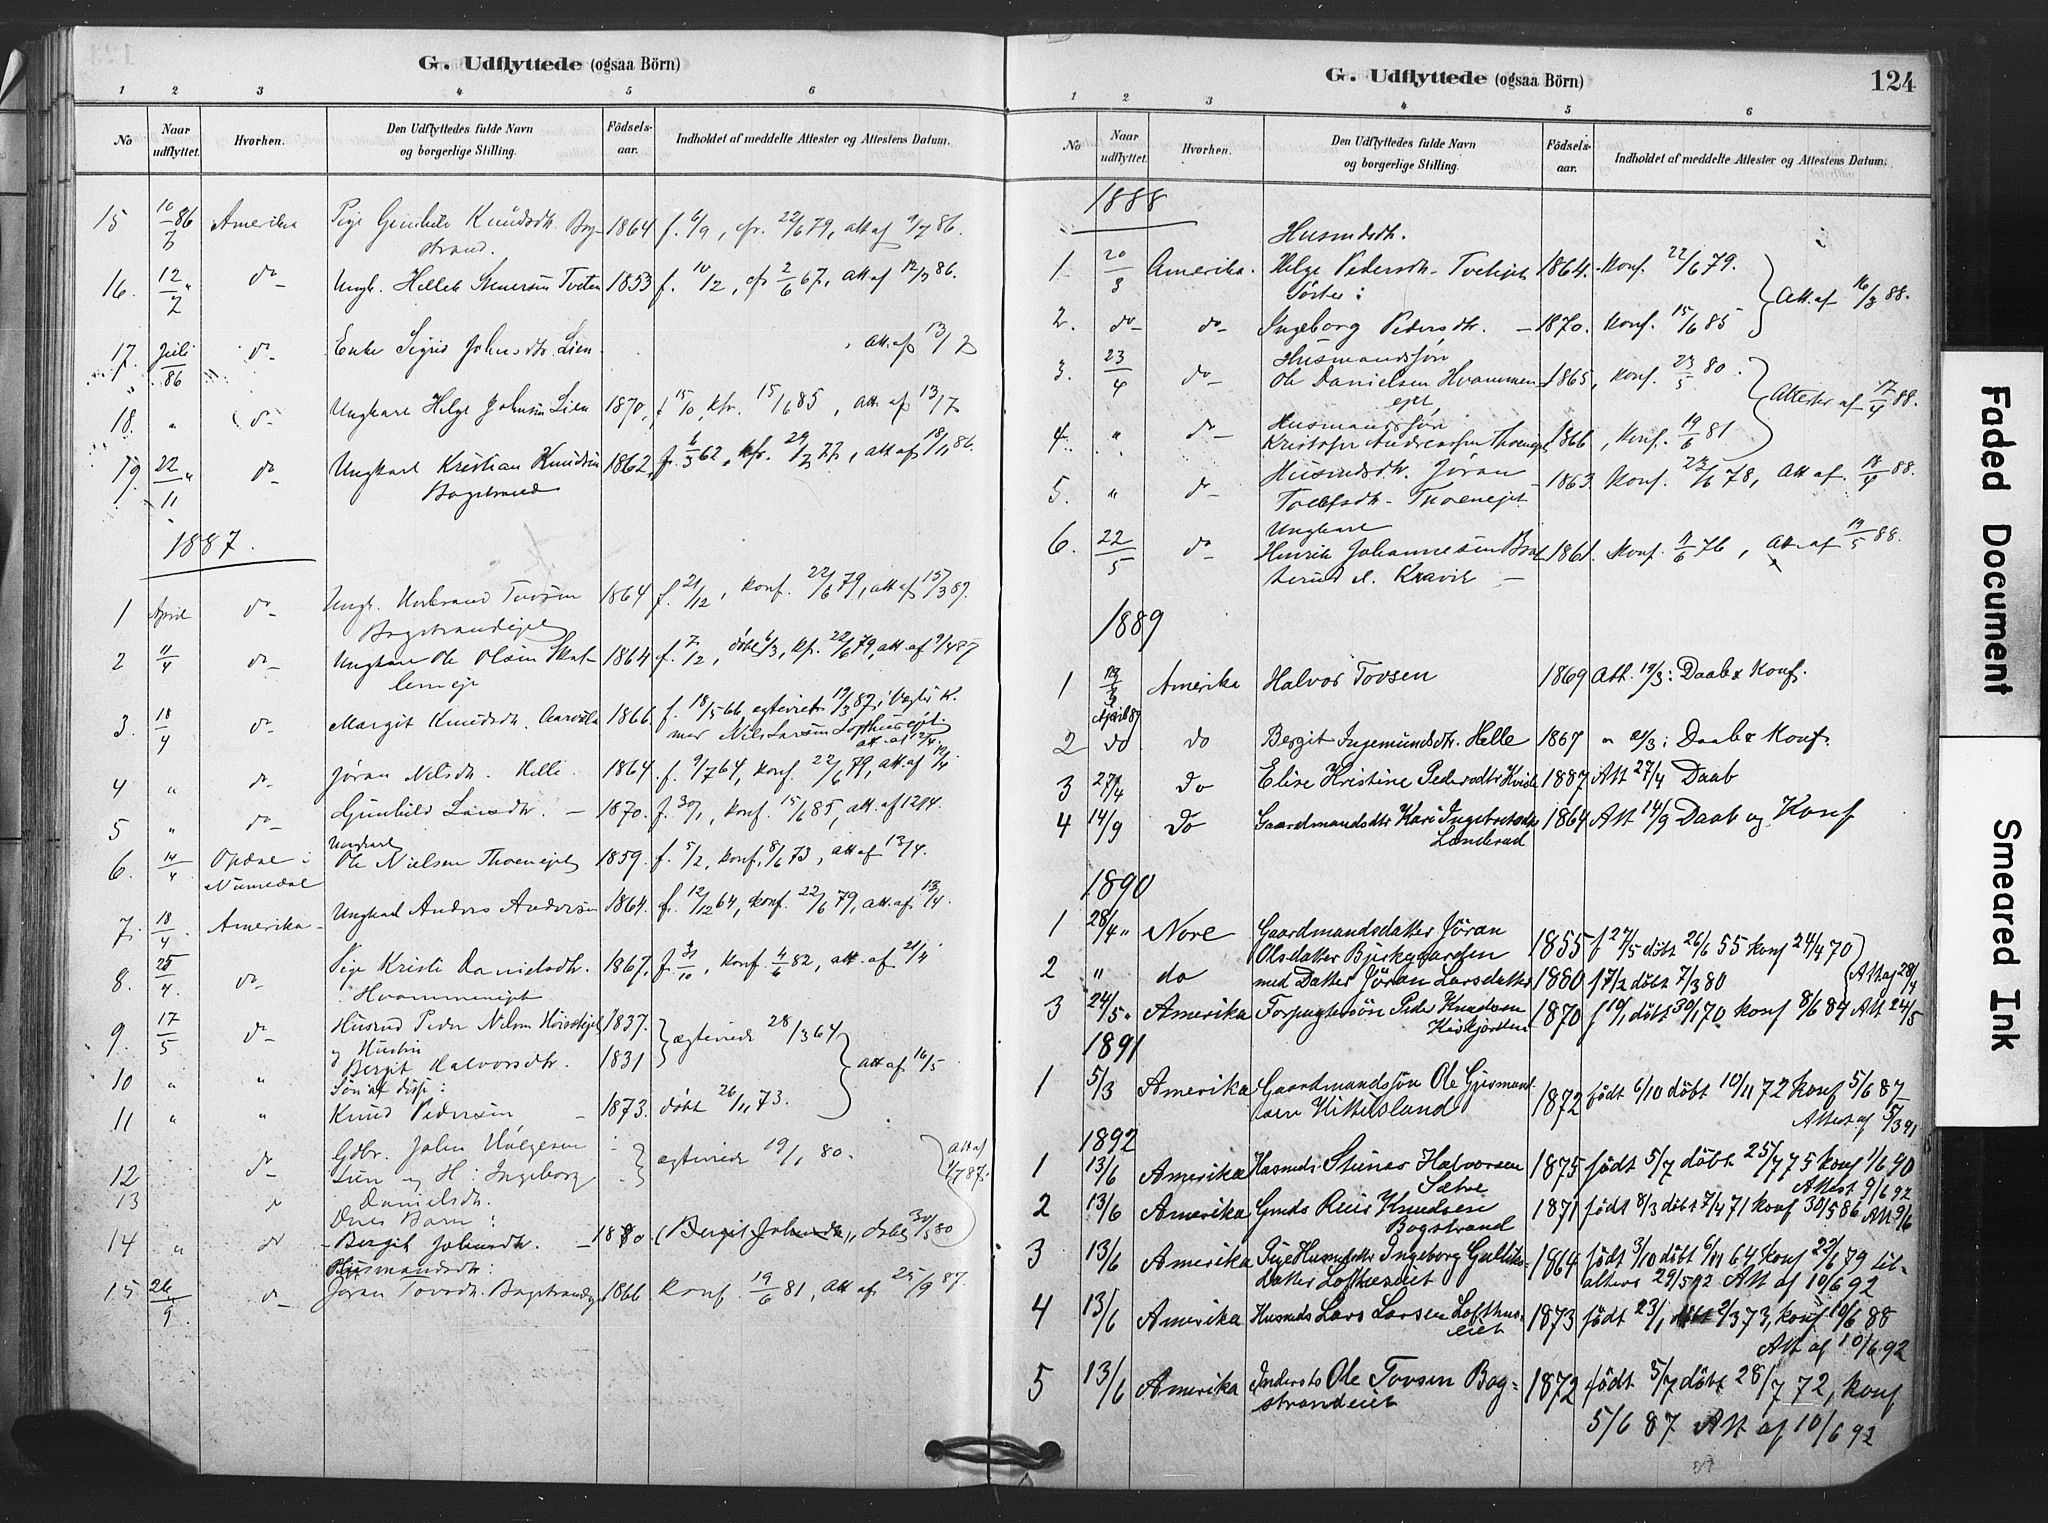 G. Udflyttede (ogsaa Börn)
1 2 3 4 5 6
No Naar udflyttet. Hvorhen. Den Udflyttedes fulde Navn og borgerlige Stilling. Födsels-aar. Indholdet af meddelte Attester og Attestens Datum.
15 Amerika Pige Gunhild Knudsdtr. Bog- 1864 f. 6/9, cfr. 22/6 79, att af 9/7 86.
strand.
16. 12/7 do Ungk. Hellek Stenersen Tveten 1853 f. 10/12, cfr 2/6 67, att af 12/7 86.
17. Juli 86 do Enke Sigrid Johnsdtr. Lien att. af 13/7
18. " do Ungkarl Helge Johnsen Lien 1870, f 15/10, kfr. 15/6 85, att. af 13/7
19. 22/11 " do Ungkarl Kristian Knudsen 1862, kfr. att. af
Bogstrand
1887.
1 April do Ungk. Tovsen 1864 f. 21/12, konf. 22/6 79, att af 15/3 87.
Bogstrandeiet
2 11/4 do Ungkarl Ole Olsen 1864 f. 7/12, döbt 6/3, kf. 22/6 79, att. af 9/4 87
3. 18/4 do Margit Knudsdtr. 1866. f. 18/5 66, egteviet 19/3 87 i K.
med Nils Larsen Lofthuseiet.
att. af 12/4.
4 " do Jöran Nilsdtr. Helle. 1864. f. 9/7 64, konf. 22/6 79, att. af
5 " do Gunhild Larsdtr. 1870. f. 30/1, konf. 15/6 85, att. af 12/4.
Ungkarl
6. 14/4 Opdal i Ole Nielsen Thoeneiet 1859. f. 5/2, konf. 8/6 73, att af 13/4.
Numedal
7. 18/4 Amerika Ungkarl Anders Andersen 1864. f. 12/12 64, konf. 22/6 79, att. af 13/4.
8. 25/4. do Pige Kristi Danielsdtr. 1867, konf. 4/6 82, att. af 21/4
Hvammeneiet
9. 17/5 do Husmd Peder Nilsen 1837. egteviede 28/3 64
og Hustru
10 " " Bergit Halvorsdtr. 1831 att af 16/5
Sön af disse:
11 " " Knud Pedersen 1873. döbt 26/11 73.
12 do Gdbr. John Helgesen egteviede 19/1 80. att af 1/7 87.
13 Lien og H: Ingeborg
Danielsdtr.
Deres Barn:
14 " do Bergit Johnsdtr. 1880 (Bergit Johnsdtr, döbt 30/5 80
Husmandsdtr:
15 26/9 do Jöran Tovsdtr. Bogstrandeiet 1866 konf. 19/6 81, att af 25/9 87.
G. Udflyttede (ogsaa Börn) 124
1 2 3 4 5 6
No Naar udflyttet. Hvorhen. Den Udflyttedes fulde Navn og borgerlige Stilling. Födsels-aar. Indholdet af meddelte Attester og Attestens Datum.
1888
Husmdsdtr.
1 20/3 Amerika. Helge Pedersdtr. 1864. konf. 22/6 79. Att. af 16/3 88.
Söster:
2. do do Ingeborg Pedersdtr. 1870. konf. 15/6 85
Husmandssön
3. 23/4 do Ole Danielsen Hvammen- 1865, konf. 23/5 80. Attester af 17/4 88.
eiet
Husmandssön
4. " do Kristofer Andreassen Thoeneiet 1866, konf. 19/6 81
Husmdsdtr. Jöran
5. " do Thoeneiet 1863. konf. 23/6 78, Att af. 18/4 88.
Ungkarl
6. 22/5 do Henrik Johannesen 1861. konf. 11/6 76, Att. af 19/5 88.
Kravik
1889
1 Amerika Halvor Tovsen 1869 Att. 19/3: Daab & Konf.
April 89
2 do do Bergit Ingemundsdtr. Helle 1867 " 21/3: Daab & Konf.
3 27/4 Do Elise Kristine Pedersdtr Kvisle 1887 Att 27/4 Daab
4 14/9 Do Gaardmandsdtr Kari Ingebretsdtr 1864 Att 14/9 Daab og Konf
Landsrud
1890
1 28/4 " Nore Gaardmandsdatter Jöran
Olsdatter Bjerkgaarden 1855 f 27/5 döbt 26/6 55 konf 24/4 70 Att af 28/4
2 " do med Datter Jöran Larsdatter 1880 f 7/2 döbt 7/3 80
3 24/5 " Amerika Forpagtersön Peder Knudsen 1870 f 19/1, döbt 30/1 70 konf 8/6 84 Att 24/5
1891
1 5/3 Amerika Gaardmandssön Ole Gjermund- 1872 födt 6/10 döbt 10/11 72 konf 5/6 87
sen Kittilsland Attest af 5/3 91
1892
1 13/6 Amerika Husmds Stener Halvorsen 1875 födt 5/7 döbt 25/7 75 konf 1/6 90
Sætre Attest 9/6 92
2 13/6 Amerika Gmds Reier Knudsen 1871 födt 8/3 döbt 7/4 71 konf 30/5 86 Att 9/6
Bogstrand
3 13/6 Amerika Pige Husmdsdtr Ingeborg Gulliks- 1864 födt 3/10 döbt 6/11 64, konf 22/6 79 til-
datter Lofthuseiet alters 29/5 92 Att af 10/6 92
4 13/6 Amerika Husmds Lars Larsen Lofthus- 1873 födt 23/1 döbt 2/3 73, konf 10/6 88
eiet Att af 10/6 92
5 13/6 Amerika Inderst. Ole Tovsen Bog- 1872 födt 5/7 döbt 28/7 72, konf
strandeiet 5/6 87 Att af 10/6 92
Faded Document
Smeared Ink